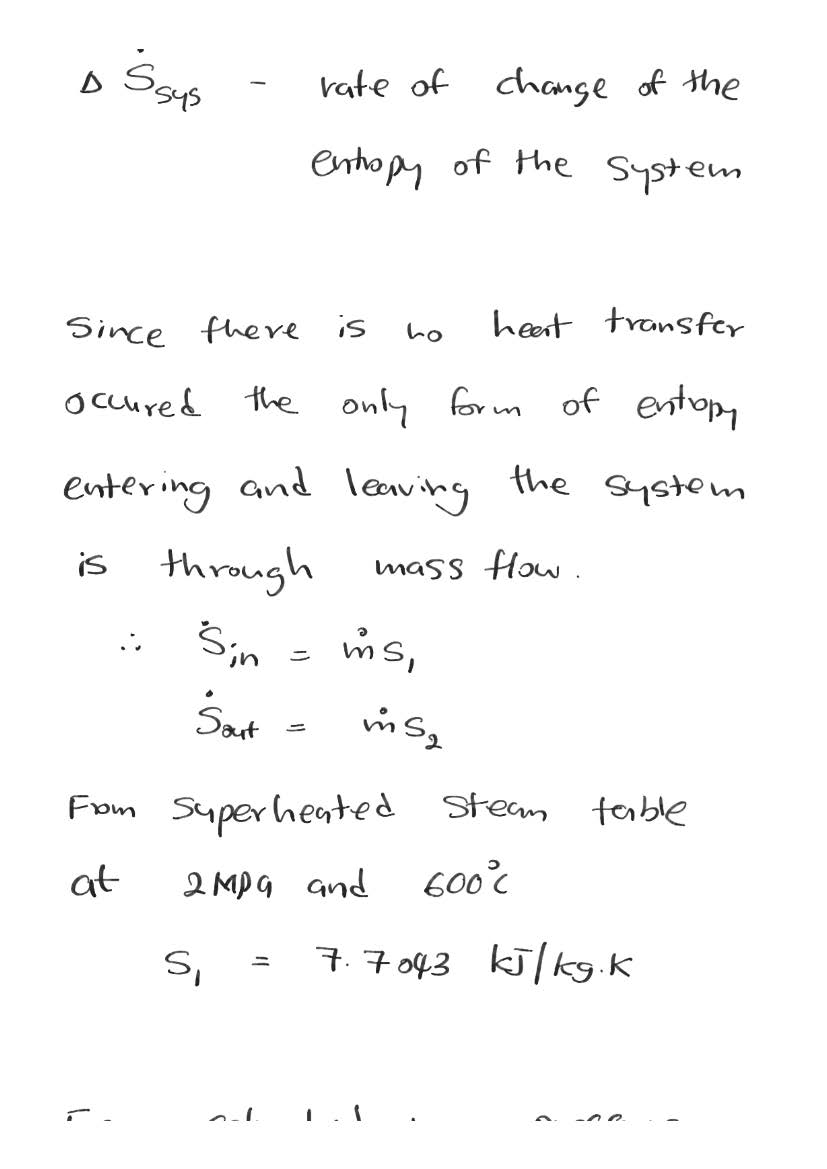 Δ Ṡsys - rate of change of the
entropy of the system
Since there is no heat transfer
occured the only form of entropy
entering and leaving the system
is through mass flow.
∴ Ṡin = ṁs₁
Ṡout = ṁs₂
From superheated steam table
at 2MPa and 600°C
S₁ = 7.7043 kJ/kg.K